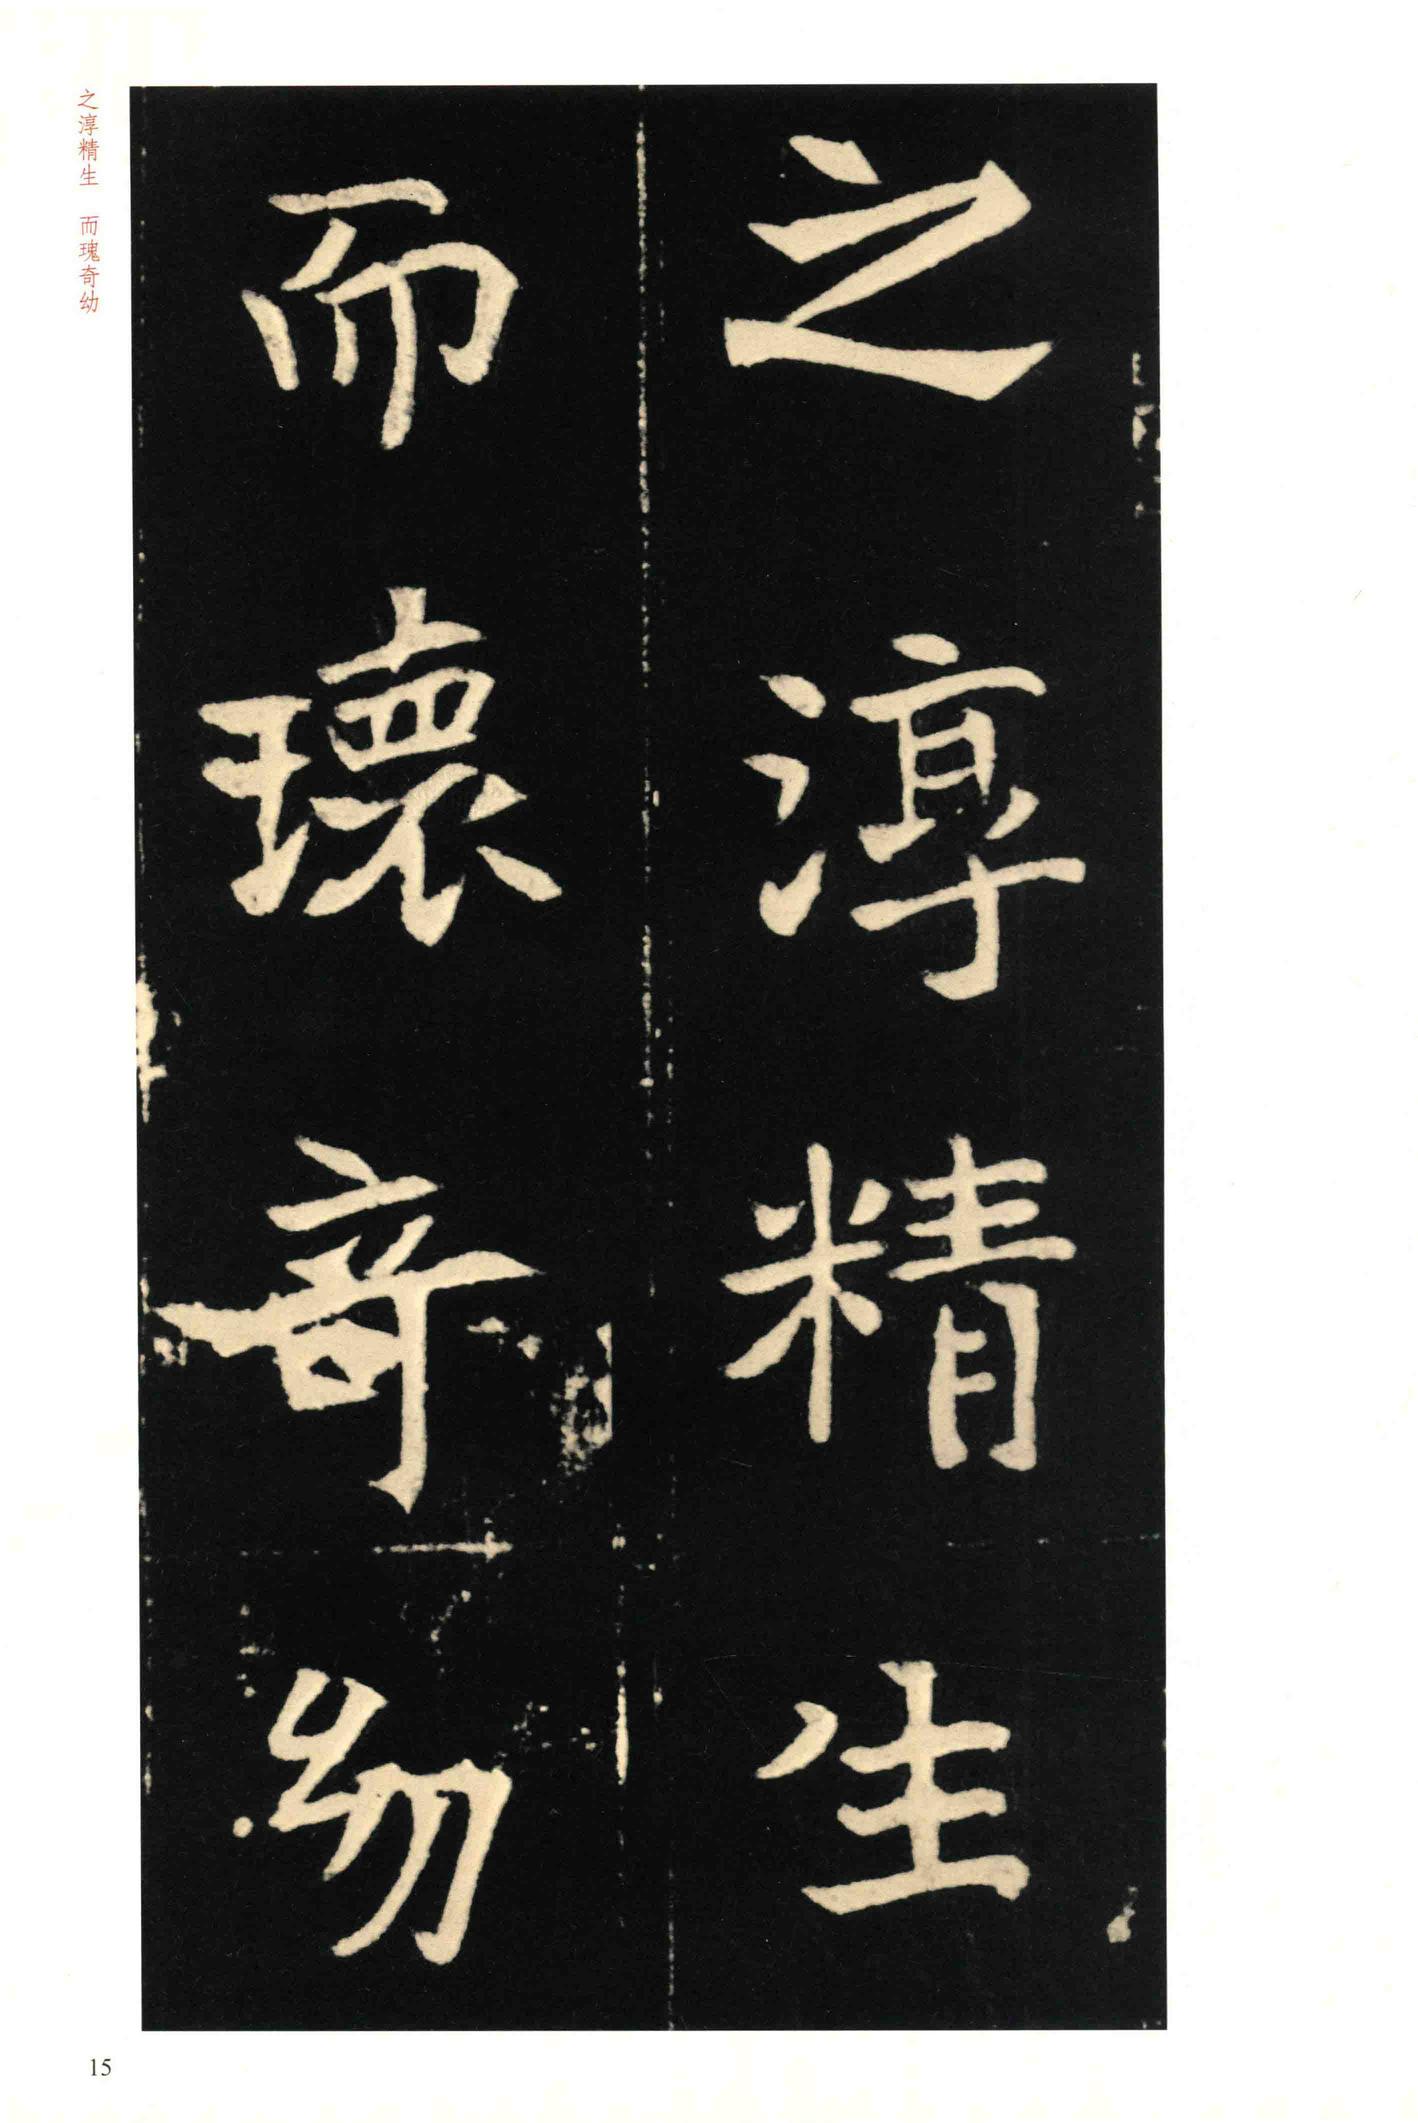 之淳精生
而瓌奇幼
之淳精生　而瑰奇幼
15